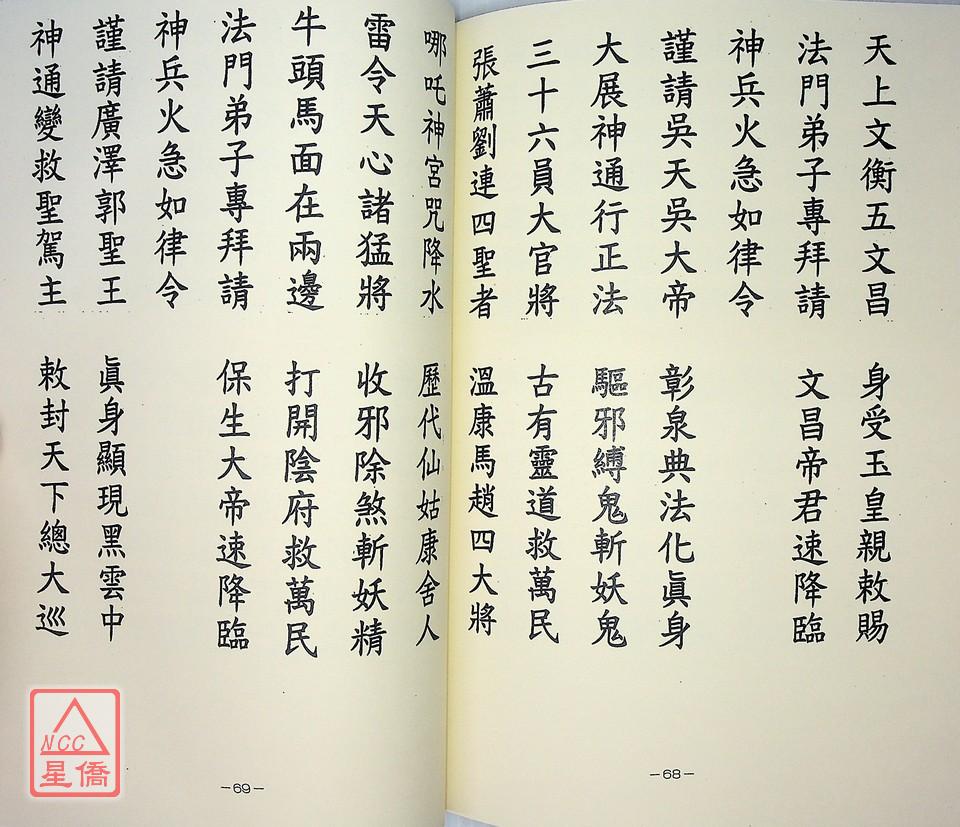 天上文衡五文昌　身受玉皇親敕賜
法門弟子專拜請　文昌帝君速降臨
神兵火急如律令
謹請吳天吳大帝　彰泉典法化眞身
大展神通行正法　驅邪縛鬼斬妖鬼
三十六員大官將　古有靈道救萬民
張蕭劉連四聖者　溫康馬趙四大將
－68－
哪吒神宮咒降水　歷代仙姑康舍人
雷令天心諸猛將　收邪除煞斬妖精
牛頭馬面在兩邊　打開陰府救萬民
法門弟子專拜請　保生大帝速降臨
神兵火急如律令
謹請廣澤郭聖王　眞身顯現黑雲中
神通變救聖駕主　敕封天下總大巡
－69－
NCC
星僑